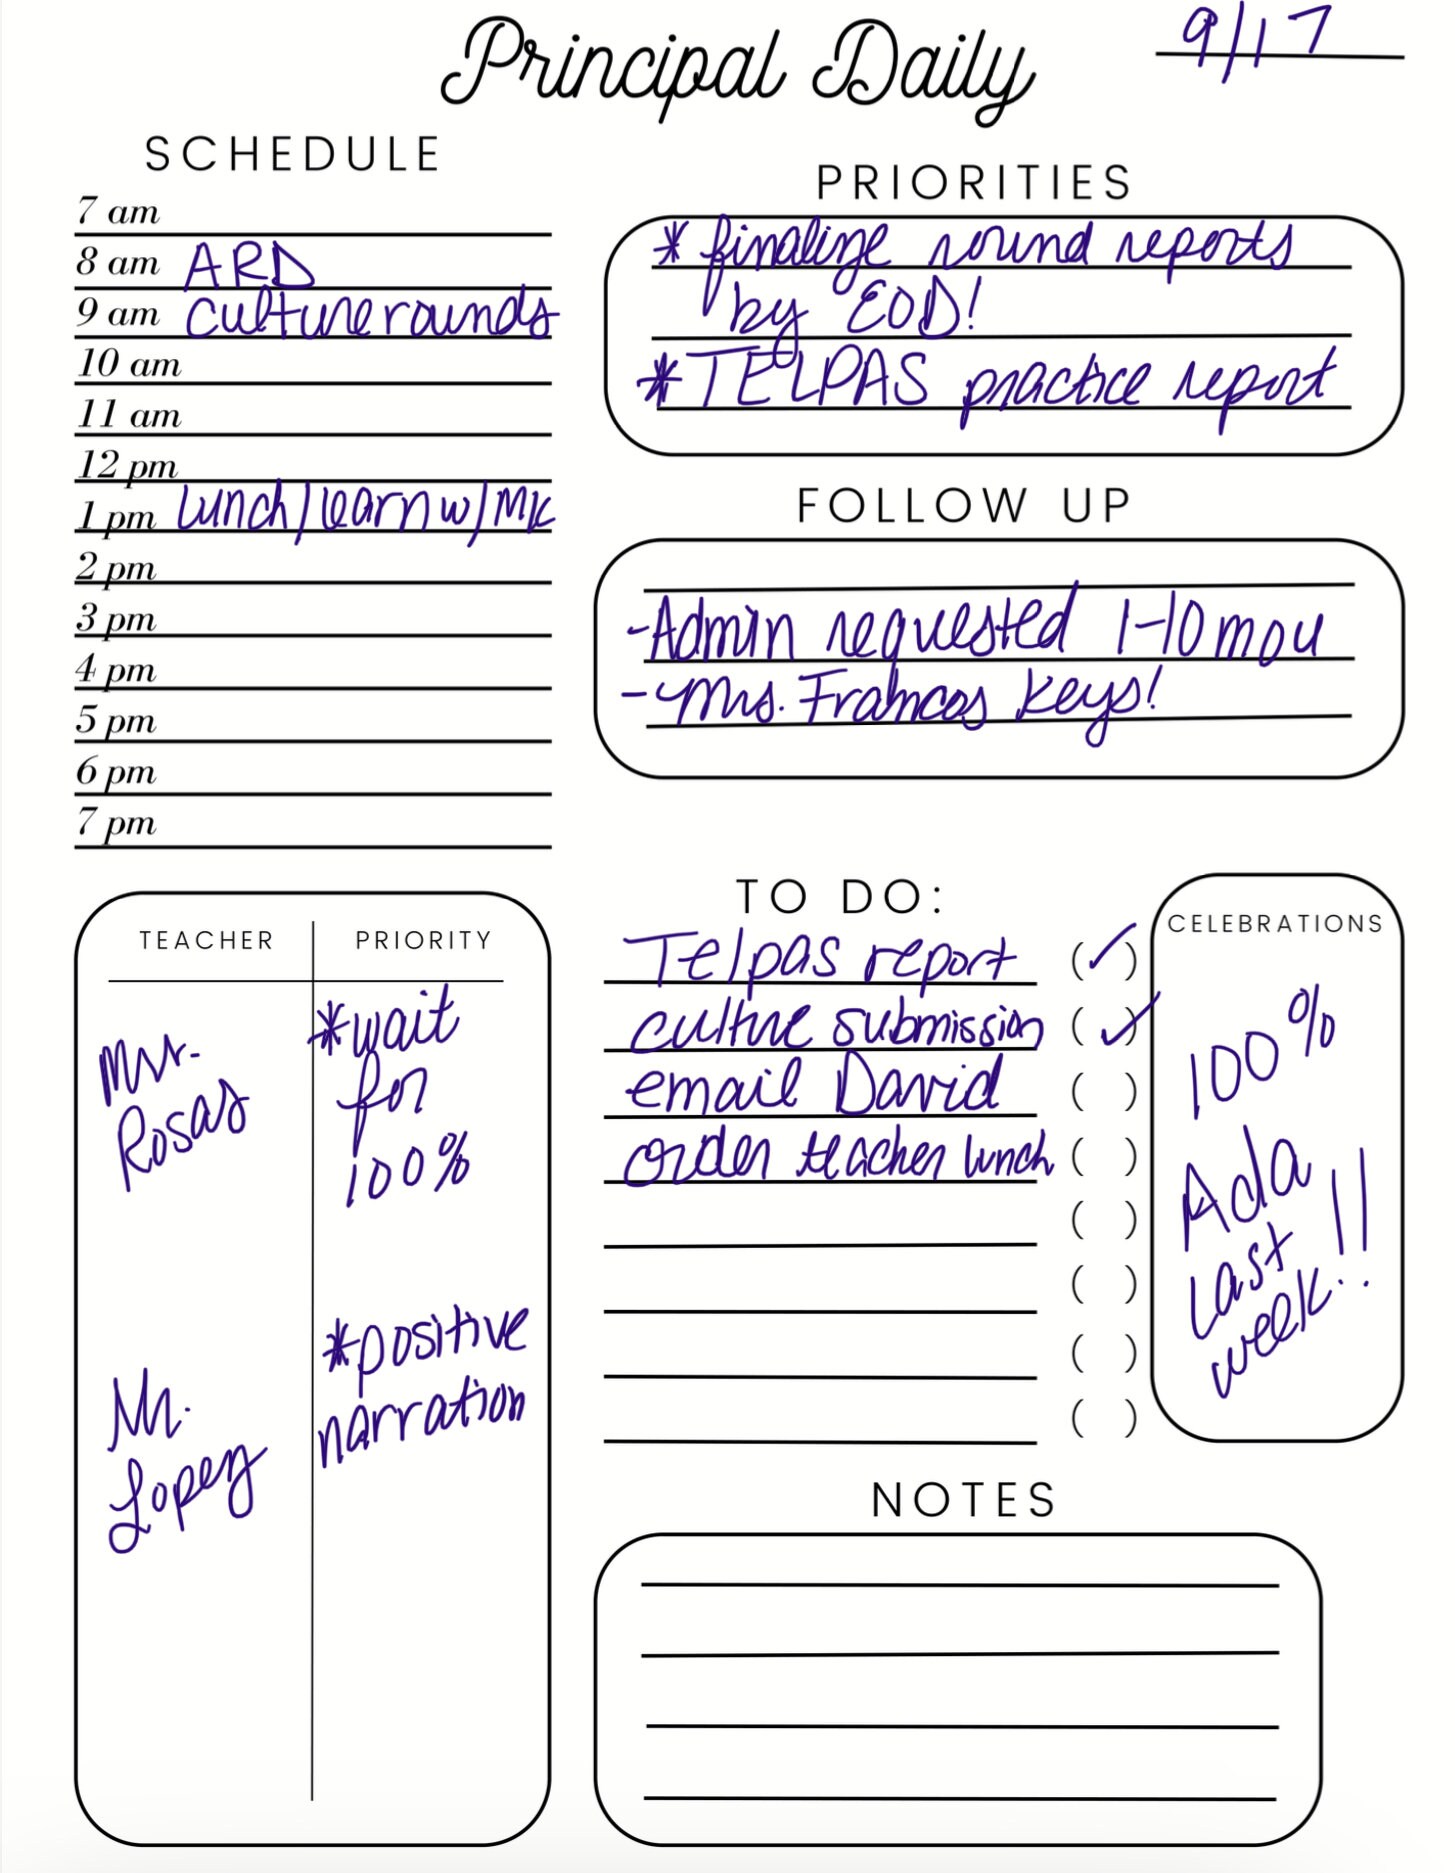 Principal Daily
9/17
SCHEDULE
7 am
8 am ARD
9 am culture rounds
10 am
11 am
12 pm
1 pm Lunch/learn w/MK
2 pm
3 pm
4 pm
5 pm
6 pm
7 pm
PRIORITIES
* finalize round reports
by EOD!
* TELPAS practice report
FOLLOW UP
- Admin requested 1-10 mou
- Mrs. Francos keys!
TEACHER PRIORITY
Mrs.
Rosas
*wait
for
100%
Mr.
Lopez
*positive
narration
TO DO:
Telpas report (✓)
culture submission (✓)
email David ( )
order teacher lunch ( )
( )
( )
( )
( )
CELEBRATIONS
100%
Ada
Last
week!!
NOTES